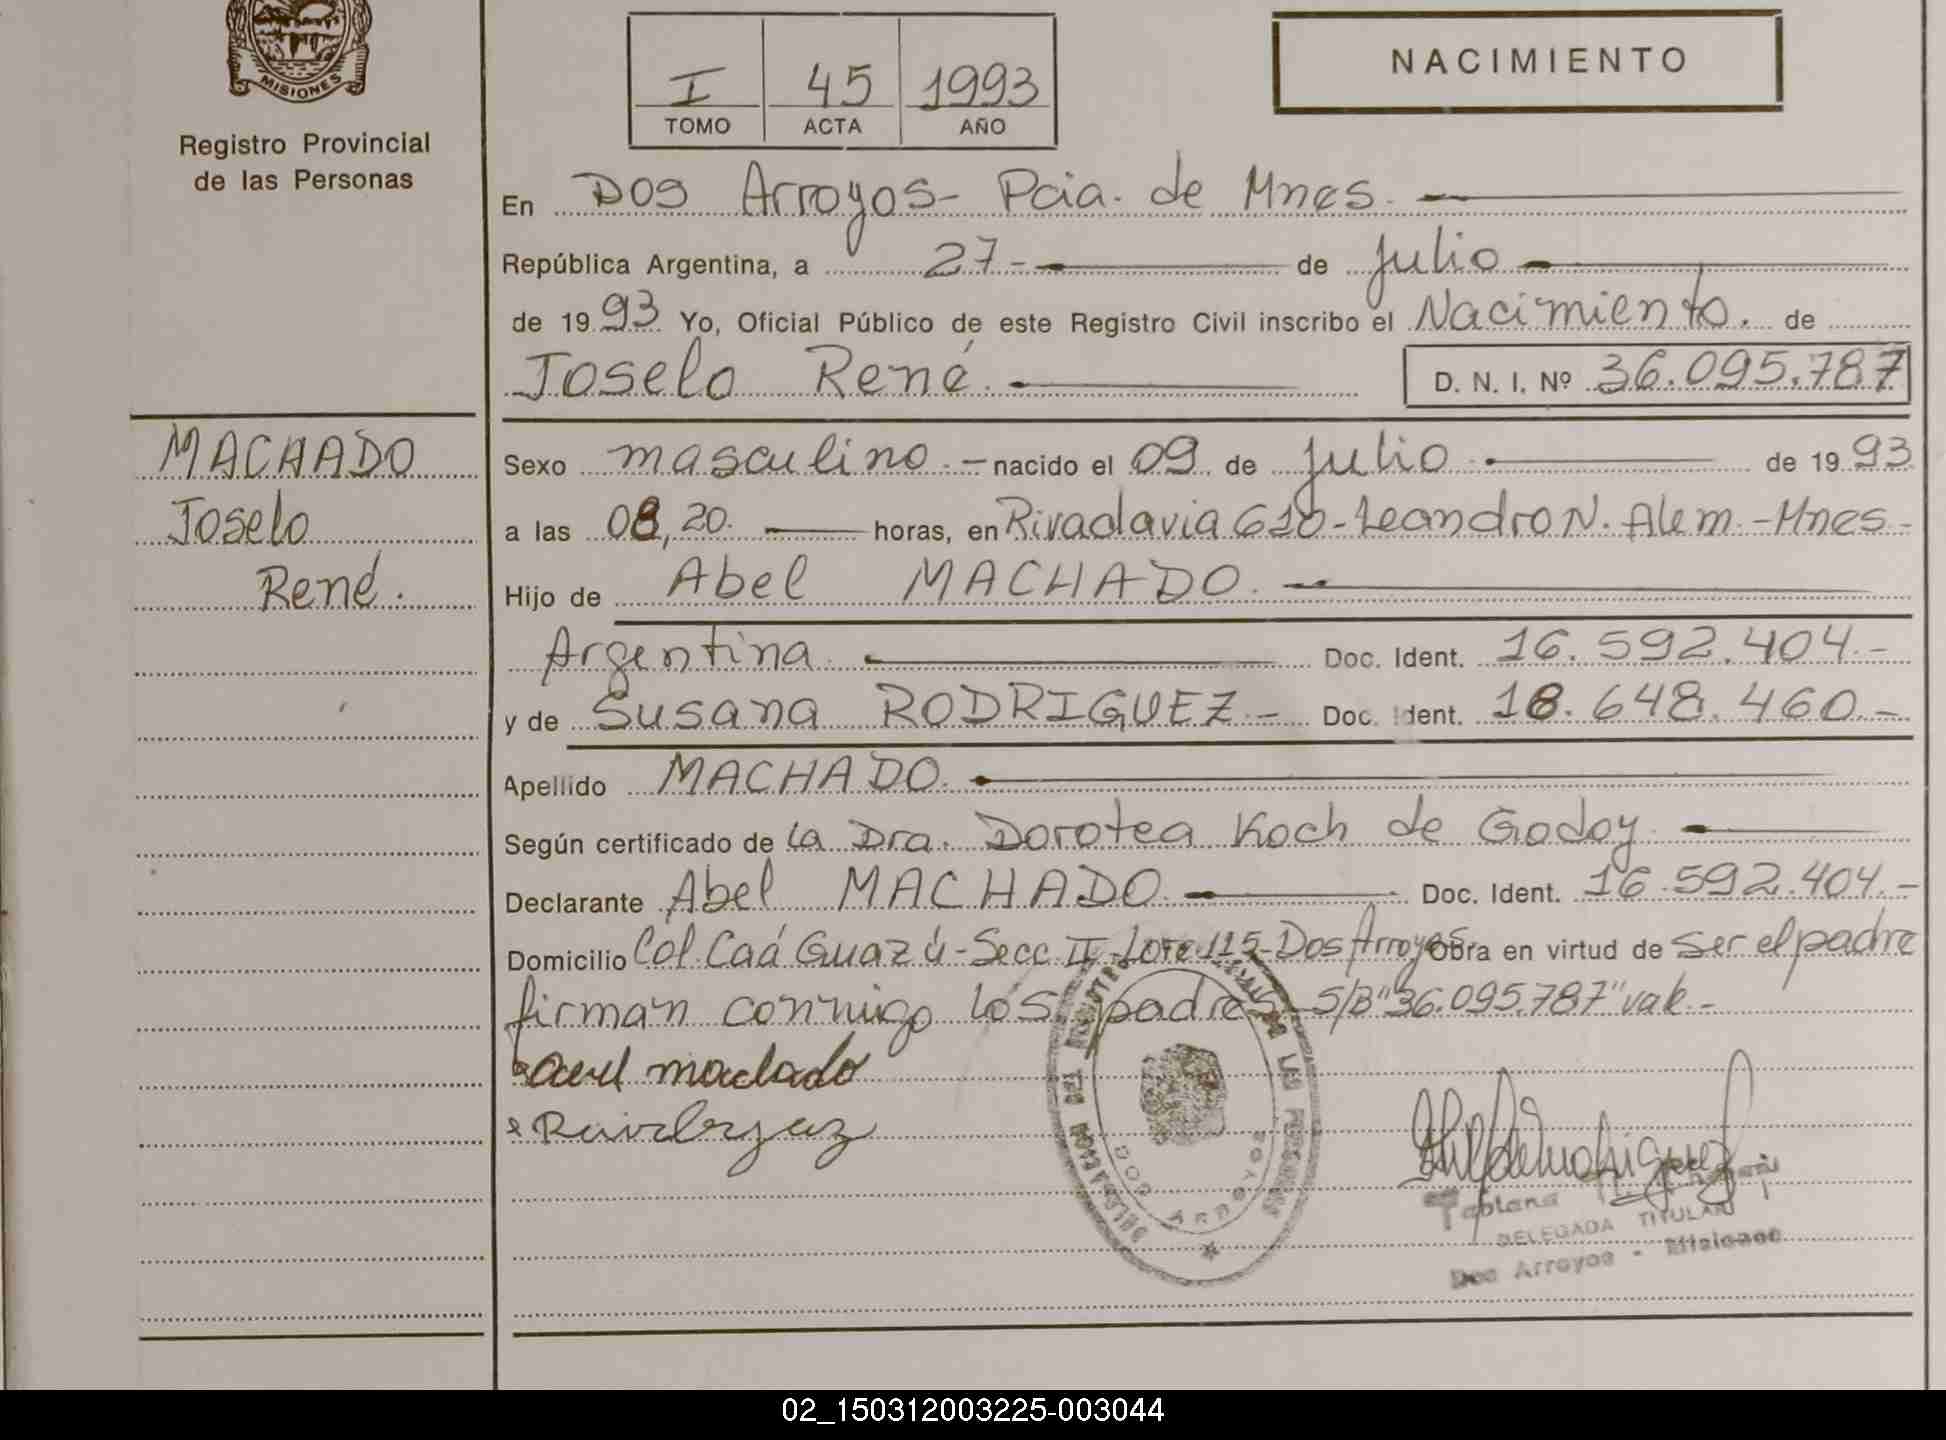 MISIONES
Registro Provincial
de las Personas
MACHADO
Joselo
René.
I 45 1993
TOMO ACTA AÑO
NACIMIENTO
En Dos Arroyos- Pcia. de Mnes.
República Argentina, a 27- de Julio
de 1993 Yo, Oficial Público de este Registro Civil inscribo el Nacimiento. de
Joselo René. D. N. I. Nº 36.095.787
Sexo masculino.- nacido el 09 de Julio de 1993
a las 08,20. horas, en Rivadavia 610-Leandro N. Alem.-Mnes-
Hijo de Abel MACHADO.
Argentina Doc. Ident. 16.592.404.-
y de Susana RODRIGUEZ.- Doc. Ident. 18.648.460.-
Apellido MACHADO.
Según certificado de la Dra. Dorotea Koch de Godoy
Declarante Abel MACHADO. Doc. Ident. 16.592.404.-
Domicilio Col. Caá Guazú-Secc. II-Lote 115-Dos Arroyos Obra en virtud de ser el padre
firman conmigo los padres S/B"36.095.787"vale.-
DOS ARROYOS
LAS PERSONAS
DELEGADA TITULAR
Dos Arroyos - Misiones
02_150312003225-003044